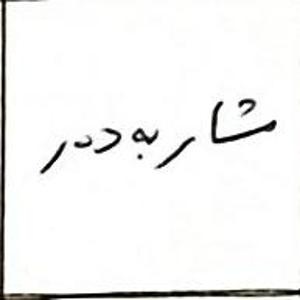 شار به دمر